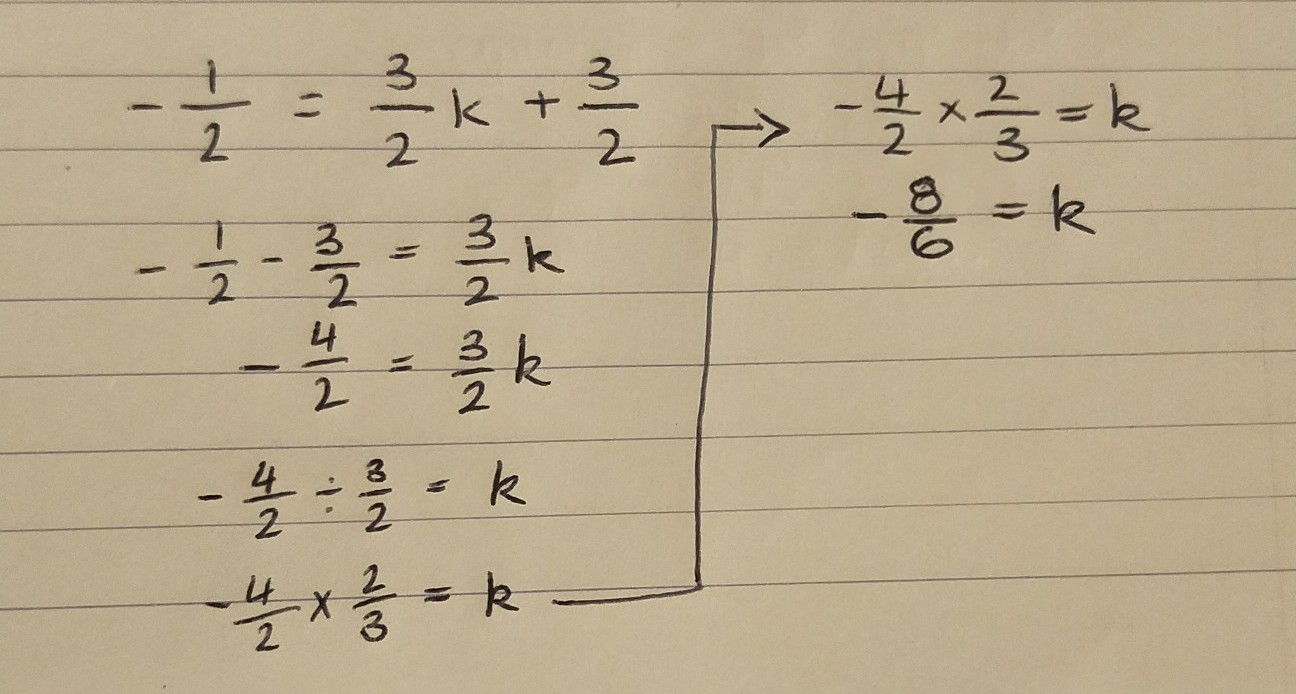 -1/2 = 3/2 k + 3/2
-1/2 - 3/2 = 3/2 k
-4/2 = 3/2 k
-4/2 ÷ 3/2 = k
-4/2 × 2/3 = k
→ -4/2 × 2/3 = k
-8/6 = k